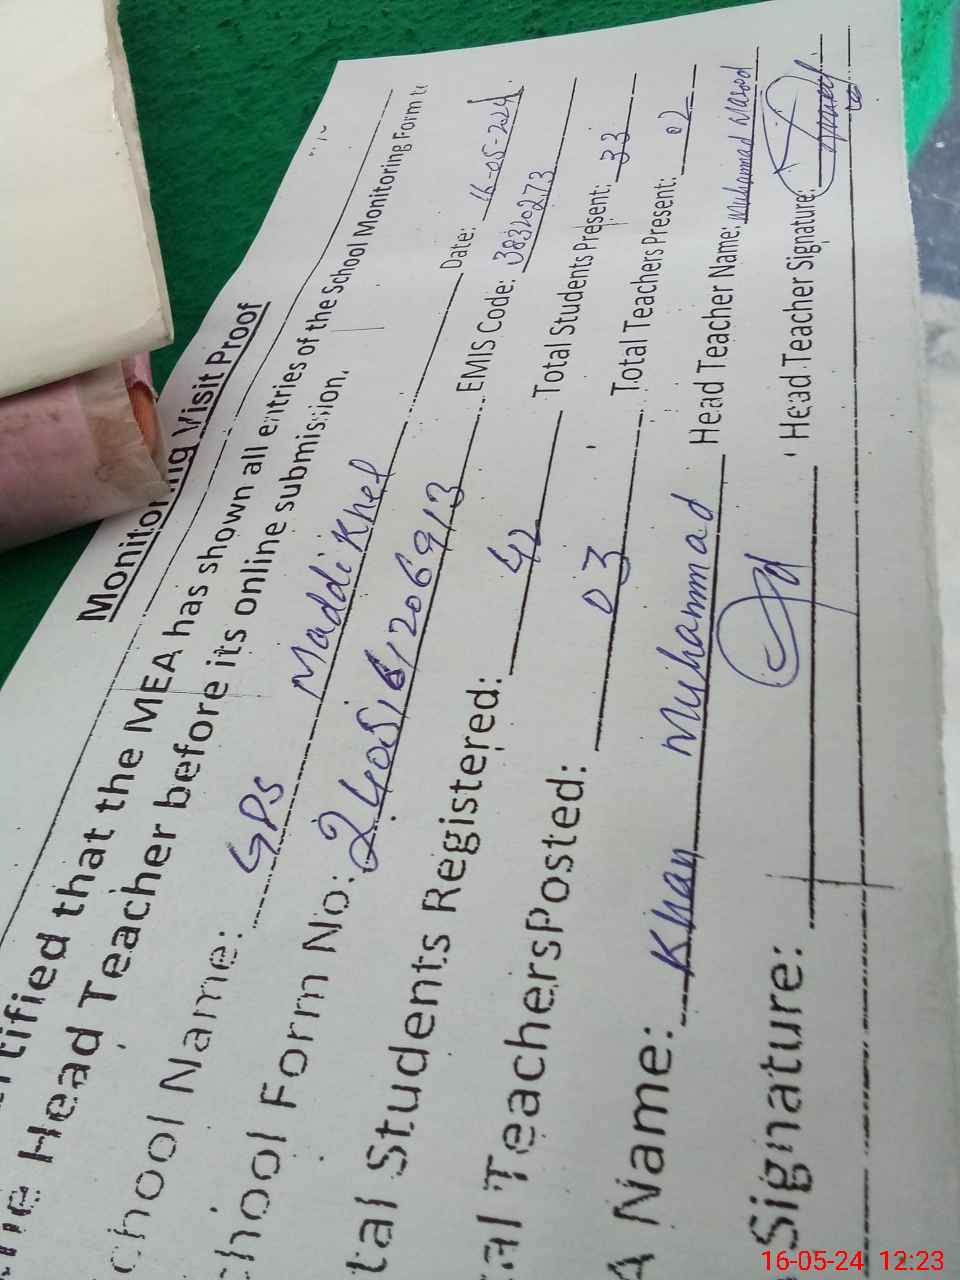 Monitoring Visit Proof
tified that the MEA has shown all entries of the School Monitoring Form to
he Head Teacher before its online submission.
chool Name: GPS Maddi Khel Date: 16-05-2024
chool Form No: EMIS Code: 38320273
tal Students Registered: 42 Total Students Present: 33
tal Teachers Posted: 03 Total Teachers Present: 02
A Name: Khan Muhammad Head Teacher Name: Muhammad Masood
Signature: Head Teacher Signature:
16-05-24 12:23